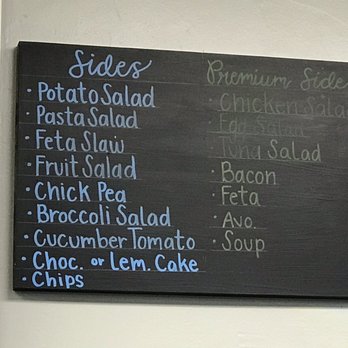 Sides
· Potato Salad
· Pasta Salad
· Feta Slaw
· Fruit Salad
· Chick Pea
· Broccoli Salad
· Cucumber Tomato
· Choc. or Lem. Cake
· Chips
Premium Side
· Chicken Sala
· Egg Salad
· Tuna Salad
· Bacon
· Feta
· Avo.
· Soup